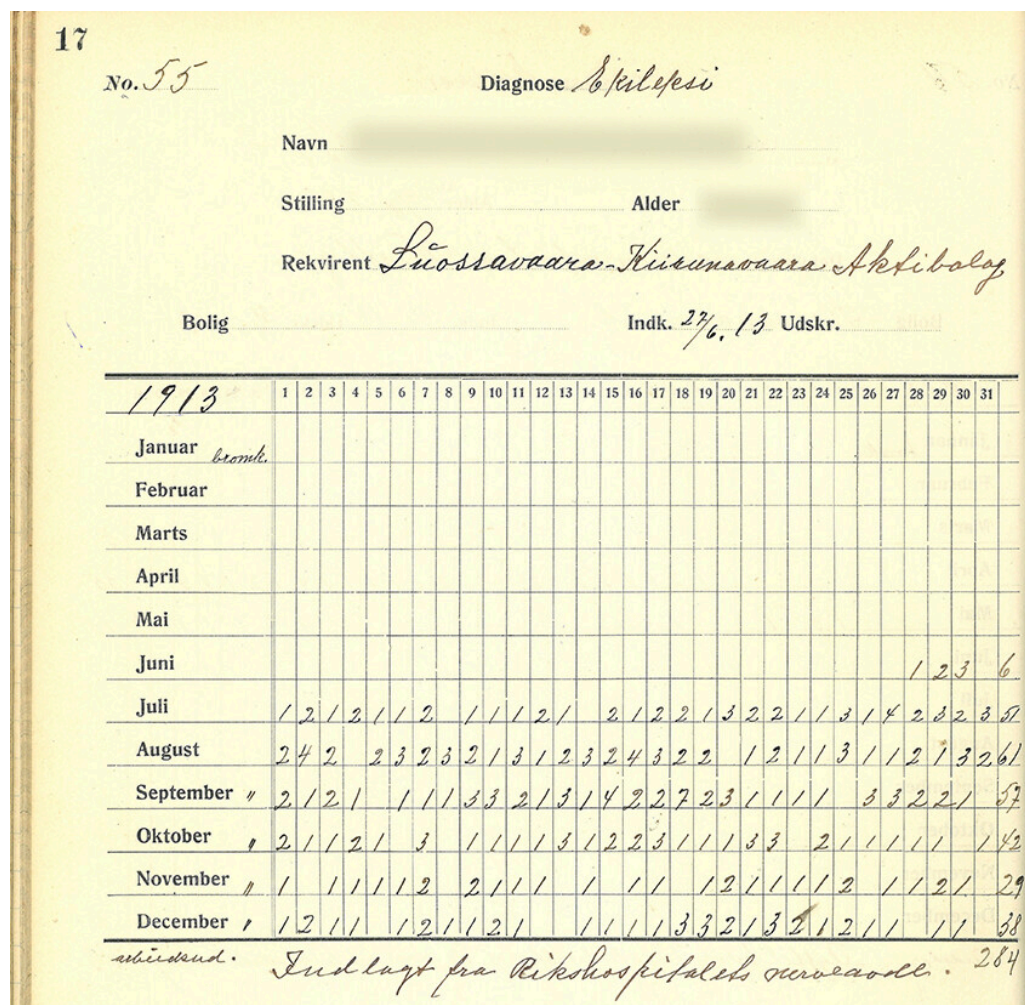 17
No. 55 Diagnose Epilepsi
Navn
Stilling Alder
Rekvirent Luossavaara-Kiirunavaara Aktibolag
Bolig Indk. 27/6. 13 Udskr.
1913 1 2 3 4 5 6 7 8 9 10 11 12 13 14 15 16 17 18 19 20 21 22 23 24 25 26 27 28 29 30 31
Januar bromk.
Februar
Marts
April
Mai
Juni 1 2 3 6
Juli 1 2 1 2 1 1 2 1 1 1 2 1 2 1 2 2 1 3 2 2 1 1 3 1 4 2 3 2 3 51
August 2 4 2 2 3 2 3 2 1 3 1 2 3 2 4 3 2 2 1 2 1 1 3 1 1 2 1 3 2 61
September " 2 1 2 1 1 1 1 3 3 2 1 3 1 4 2 2 7 2 3 1 1 1 1 3 3 2 2 1 57
Oktober " 2 1 1 2 1 3 1 1 1 1 3 1 2 2 3 1 1 1 3 3 2 1 1 1 1 1 1 42
November " 1 1 1 1 1 2 2 1 1 1 1 1 1 1 2 1 1 1 1 2 1 1 2 1 29
December " 1 2 1 1 1 2 1 1 2 1 1 1 1 1 3 3 2 1 3 2 1 2 1 1 1 1 38
Indlagt fra Rikshospitalets nerveavdl. 284